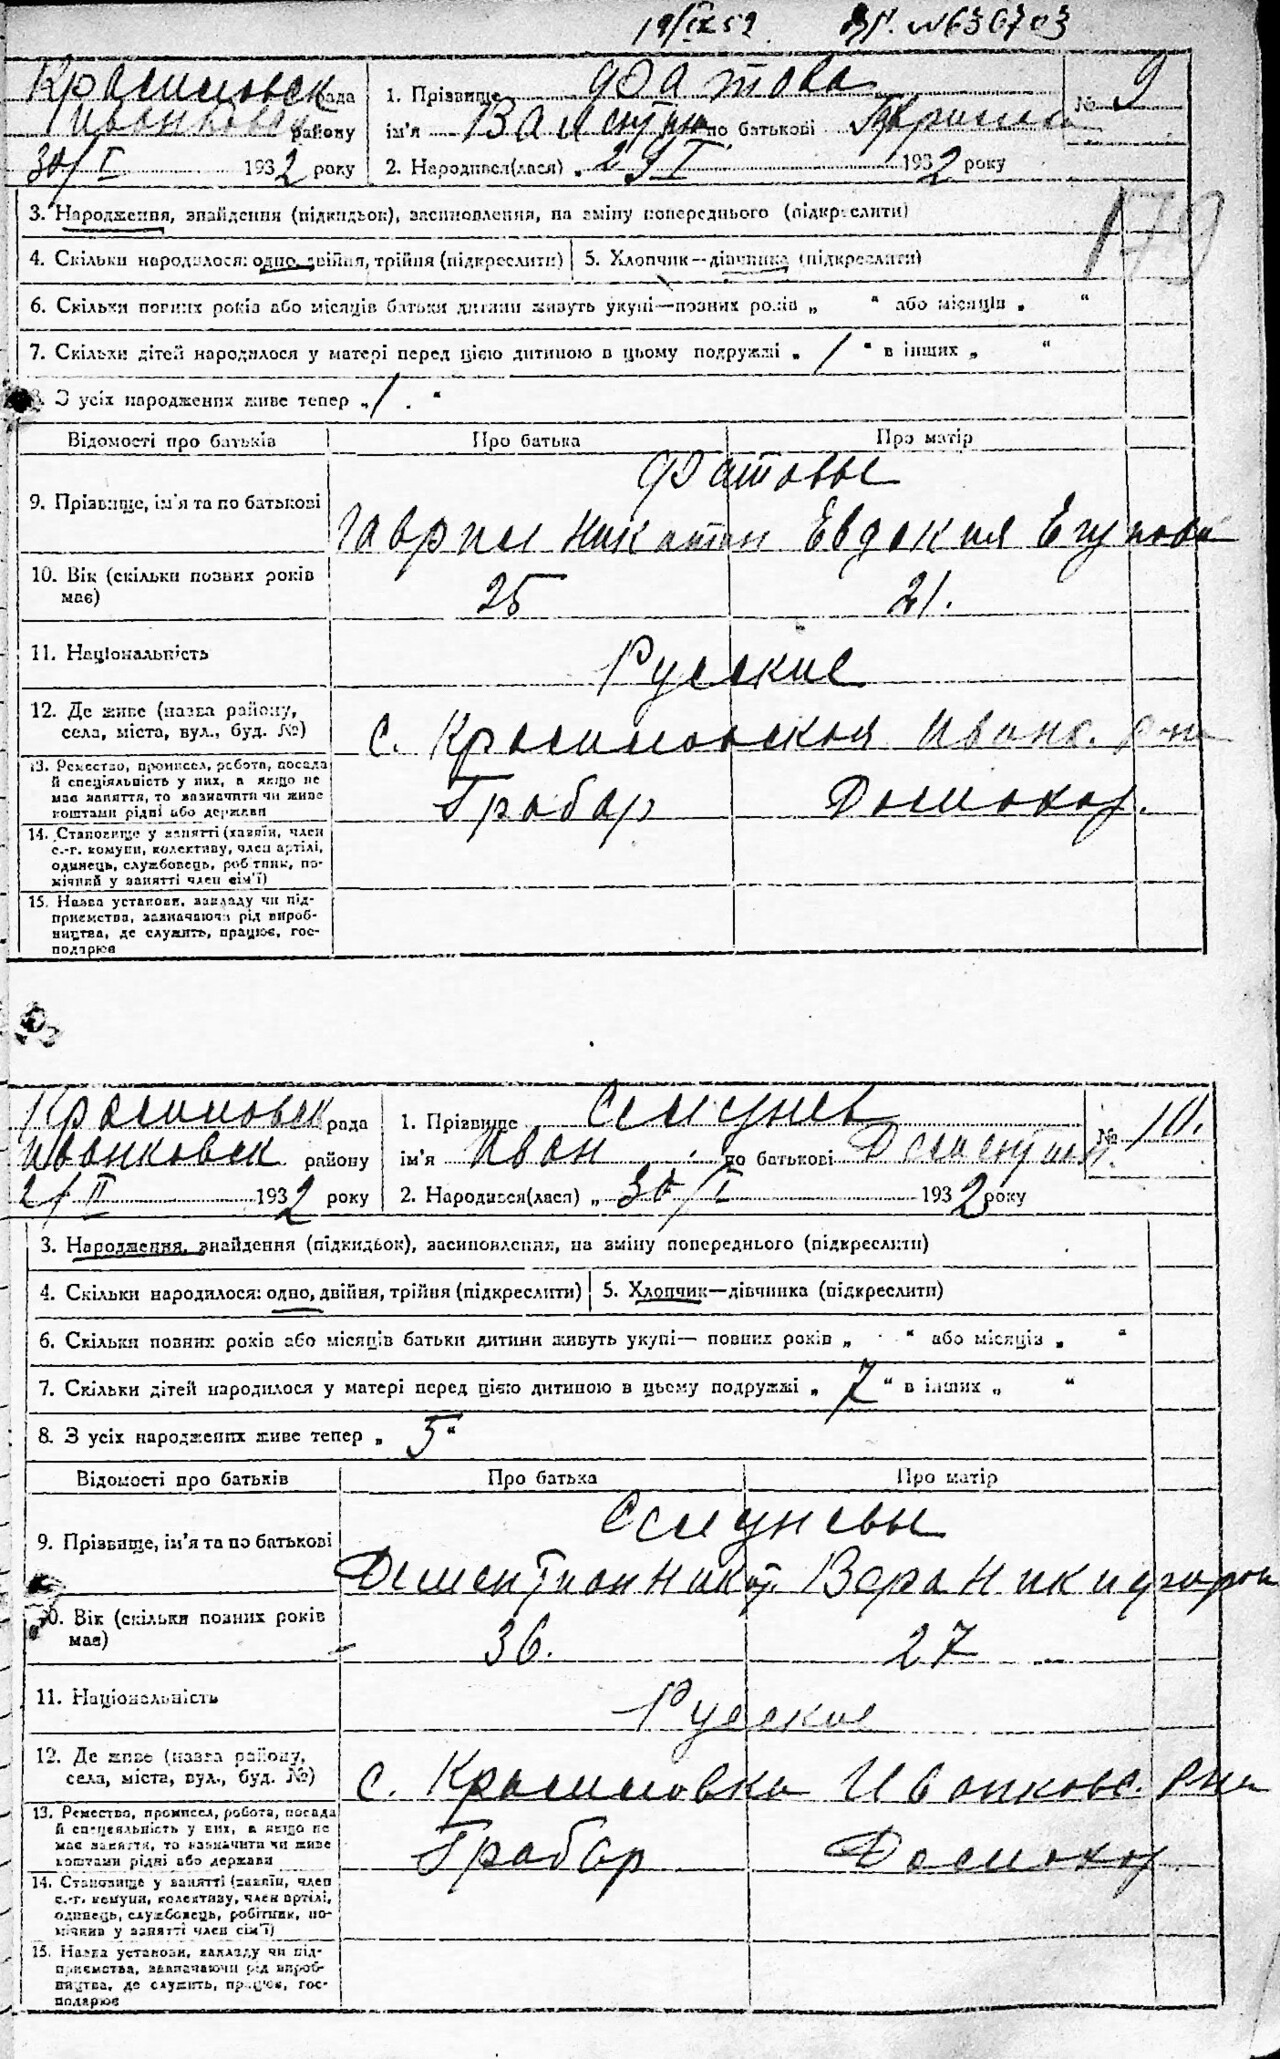 19/IX 52. ВГ. №636703
Красиловск рада 1. Прізвище Фатова № 9
Иванковск району ім'я Валентина по батькові Гаврилов
30/I 1932 року 2. Народився(лася) „ 29 I 1932 року
179
3. Народження, знайдення (підкидьок), засиновлення, на зміну попереднього (підкреслити)
4. Скільки народилося: одно, двійня, трійня (підкреслити) 5. Хлопчик—дівчинка (підкреслити)
6. Скільки повних років або місяців батьки дитини живуть укупі—повних років „ “ або місяців „ “
7. Скільки дітей народилося у матері перед цією дитиною в цьому подружжі „ 1 “ в інших „ “
8. З усіх народжених живе тепер „ 1. “
Відомості про батьків Про батька Про матір
Фатовы
9. Прізвище, ім'я та по батькові
Гаврил Никитин Евдокия Егупова
10. Вік (скільки повних років
має) 25 21.
11. Національність Русские
12. Де живе (назва району,
села, міста, вул., буд. №) с. Красиловская Иванк. рна
13. Ремество, промисел, робота, посада
й спеціяльність у них, а якщо не
має заняття, то зазначити чи живе Грабар Домохоз.
коштами рідні або держави
14. Становище у занятті (хазяїн, член
с.-г. комуни, колективу, член артілі,
одинець, службовець, робітник, по-
мічний у занятті член сім'ї)
15. Назва установи, закладу чи під-
приємства, зазначаючи рід вироб-
ництва, де служить, працює, гос-
подарює
Красиловск рада 1. Прізвище Семунев № 10.
Иванковск району ім'я Иван по батькові Дементиев.
2/II 1932 року 2. Народився(лася) „ 30/I 1932 року
3. Народження, знайдення (підкидьок), засиновлення, на зміну попереднього (підкреслити)
4. Скільки народилося: одно, двійня, трійня (підкреслити) 5. Хлопчик—дівчинка (підкреслити)
6. Скільки повних років або місяців батьки дитини живуть укупі— повних років „ “ або місяців „ “
7. Скільки дітей народилося у матері перед цією дитиною в цьому подружжі „ 7 “ в інших „ “
8. З усіх народжених живе тепер „ 5 “
Відомості про батьків Про батька Про матір
Семуневы
9. Прізвище, ім'я та по батькові
Дементиан Никит. Вера Никифоров
10. Вік (скільки повних років
має) 36. 27
11. Національність Русские
12. Де живе (назва району,
села, міста, вул., буд. №) с. Красиловка Иванковс. рна
13. Ремество, промисел, робота, посада
й спеціяльність у них, а якщо не
має заняття, то назначити чи живе Грабар Домохоз
коштами рідні або держави
14. Становище у занятті (хазяїн, член
с.-г. комуни, колективу, член артілі,
одинець, службовець, робітник, по-
мічник у занятті член сім'ї)
15. Назва установи, закладу чи під-
приємства, зазначаючи рід вироб-
ництва, де служить, працює, гос-
подарює